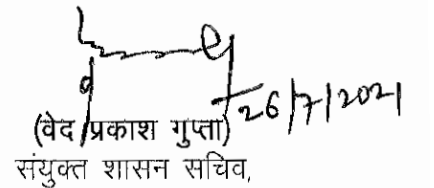 26/7/2021
(वेद प्रकाश गुप्ता)
संयुक्त शासन सचिव,